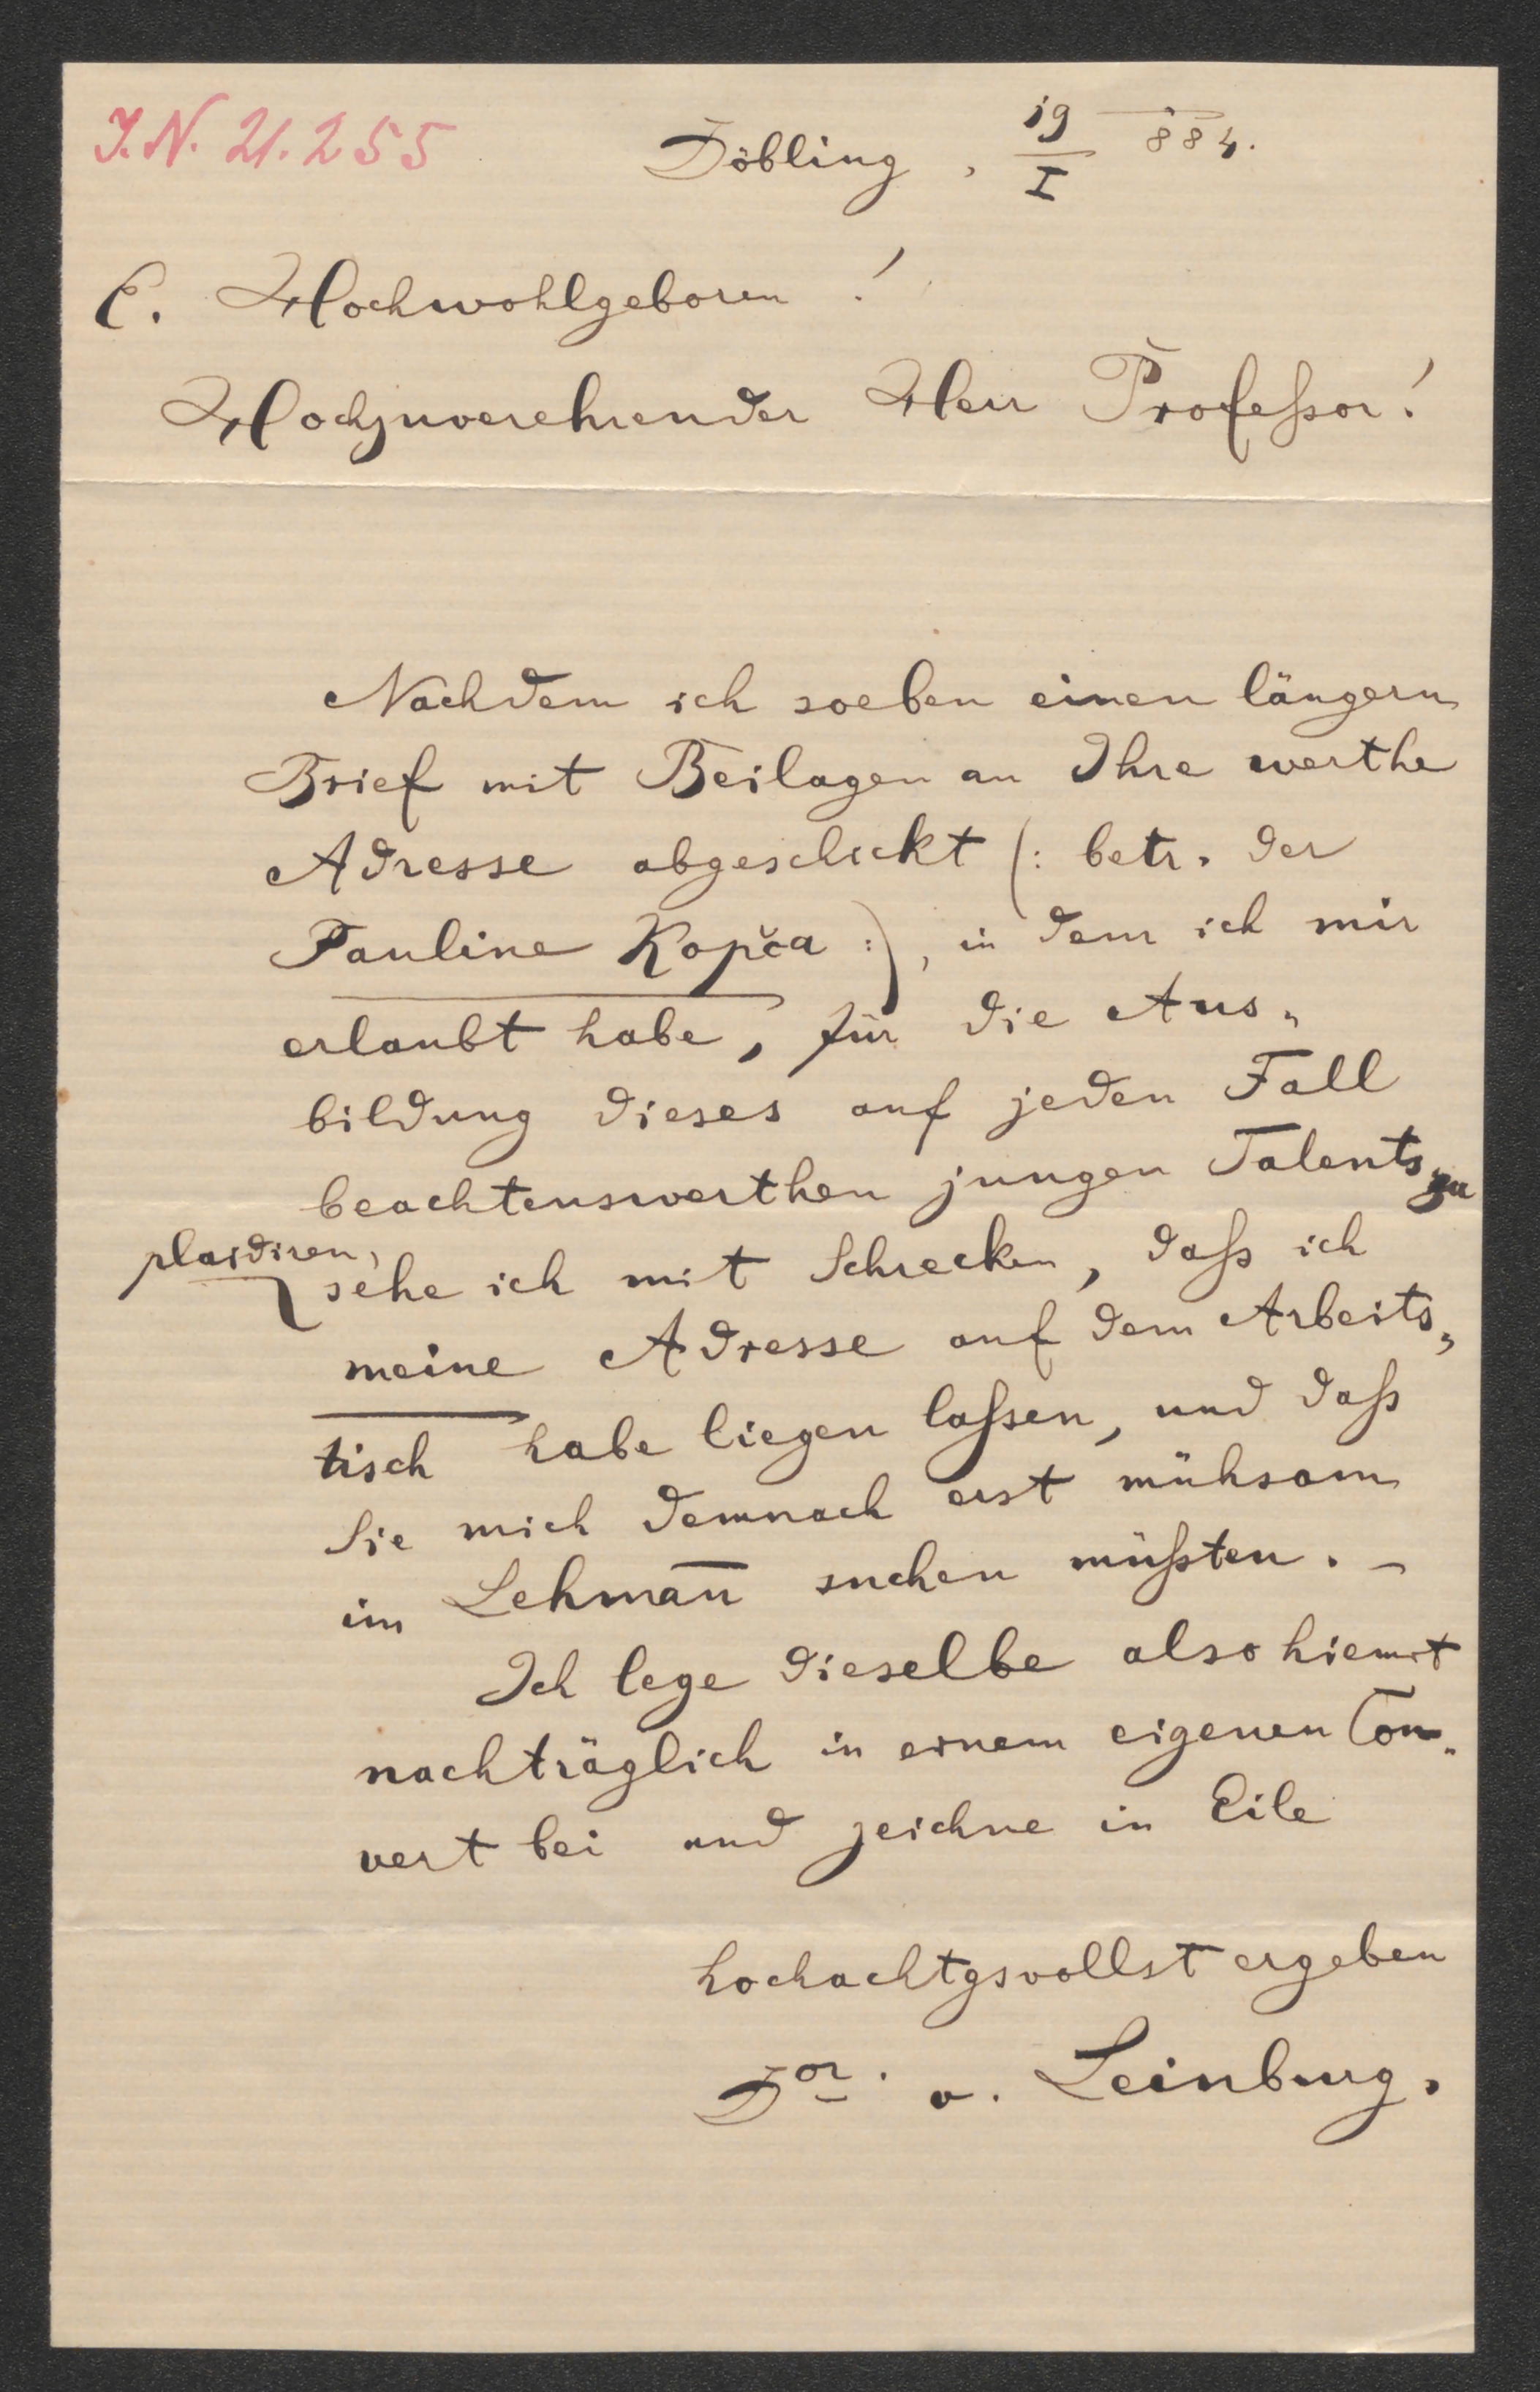 I.N. 21.255
Döbling, 19/I 884.
E. Hochwohlgeboren!
Hochzuverehrender Herr Profeßor!
Nachdem ich soeben einen längern
Brief mit Beilagen an Ihre werthe
Adresse abgeschickt (: betr. der
Pauline Kopča :), in dem ich mir
erlaubt habe, für die Aus„
bildung dieses auf jeden Fall
beachtenswerthen jungen Talents zu
plaidiren,
sehe ich mit Schrecken, daß ich
meine Adresse auf dem Arbeits„
tisch habe liegen laßen, und daß
Sie mich demnach erst mühsam
im Lehman̄ suchen müßten. –
Ich lege dieselbe also hiemit
nachträglich in einem eigenen Cou„
vert bei und zeichne in Eile
hochachtgsvollst ergeben
Dor. v. Leinburg.